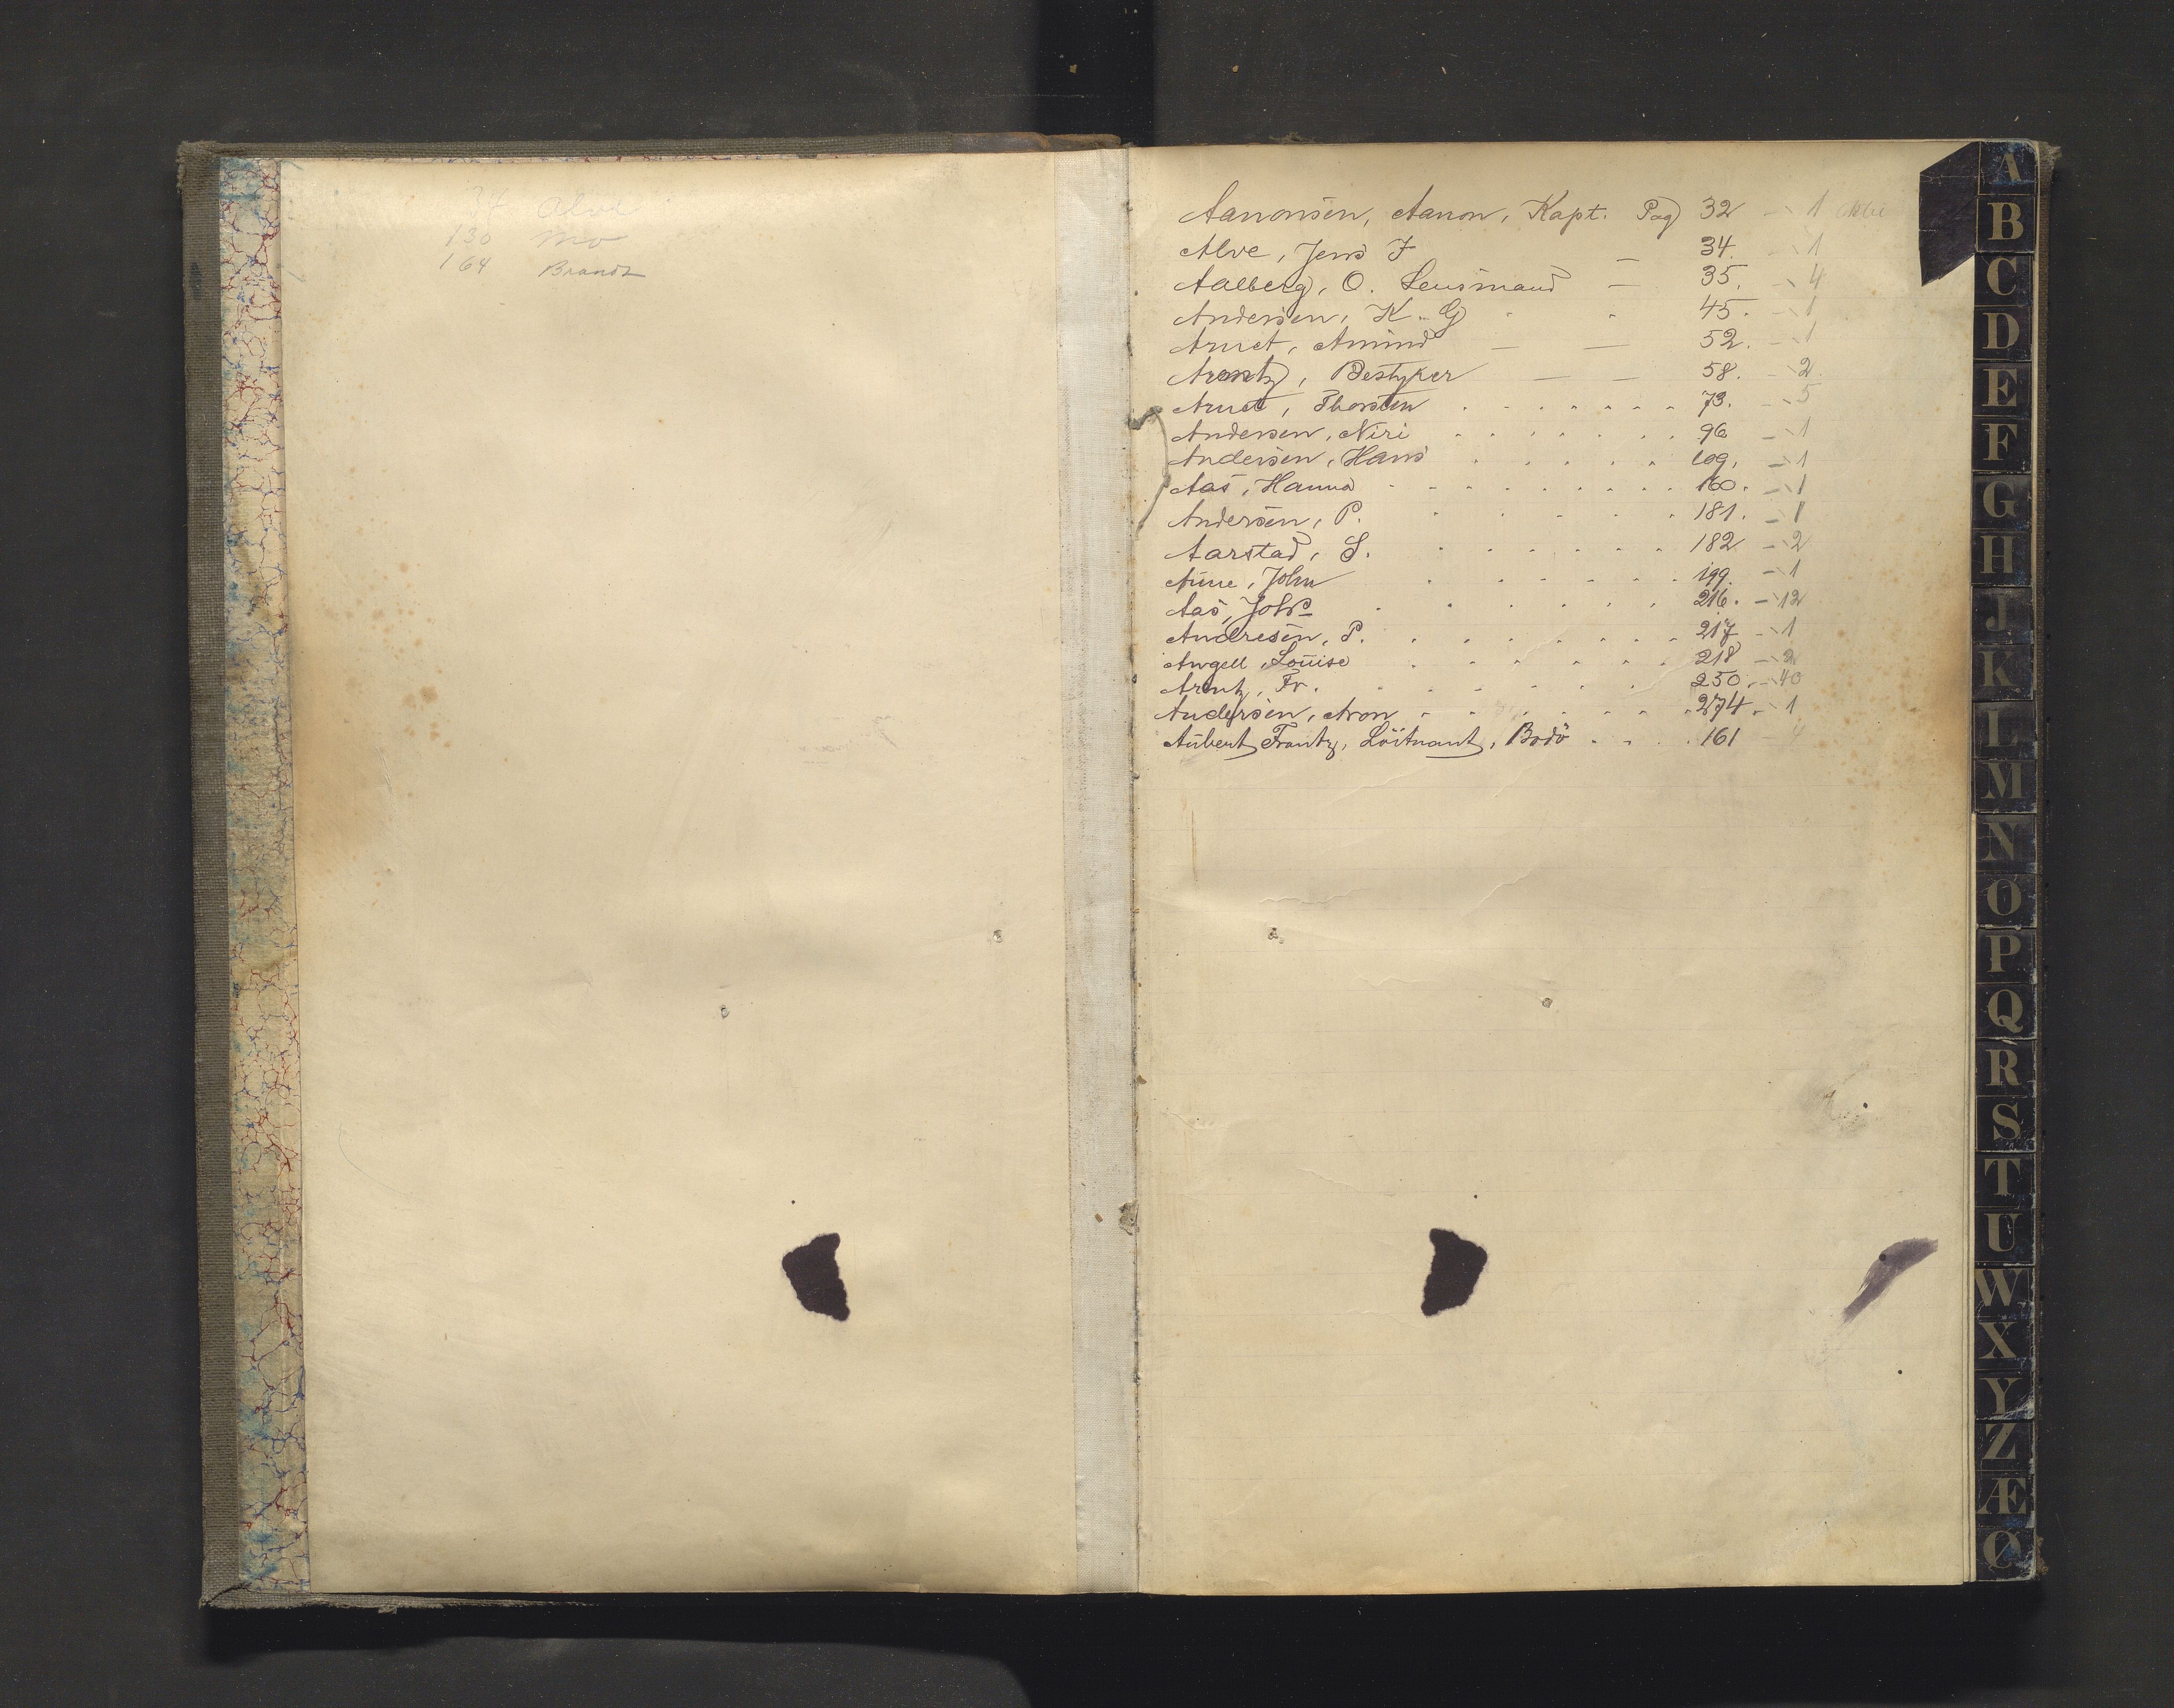 34 Alve
130 Mo
164 Brandt
Aanonsen, Aanon, Kapt. Pag 32 - 1 Aktie
Alve, Jens J — 34. - 1
Aalberg, O. Lensmand — 35. - 4
Andersen, K. G 45. - 1
Arnet, Amund — — 52. - 1
Arentz, Bestyrer — — 58. - 2
Arnet, Thorsten 73. - 5
Andersen, Niri 96 - 1
Andersen, Hans 109. - 1
Aas, Hanna 160. - 1
Andersen, P. 181. - 1
Aarstad, S. 182 - 2
Aune, John 199. - 1
Aas, Johs 216. - 12
Andresen, P. 217 - 1
Angell, Louise 218 - 2
Arentz, Fr. 250. - 40
Andersen, Aron 274. - 1
Aubert, Frantz, Löitnant, Bodö 161 - 4
A
B
C
D
E
F
G
H
J
K
L
M
N
O
P
Q
R
S
T
U
W
X
Y
Z
Æ
Ø